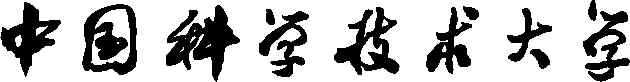 中国科学技术大学